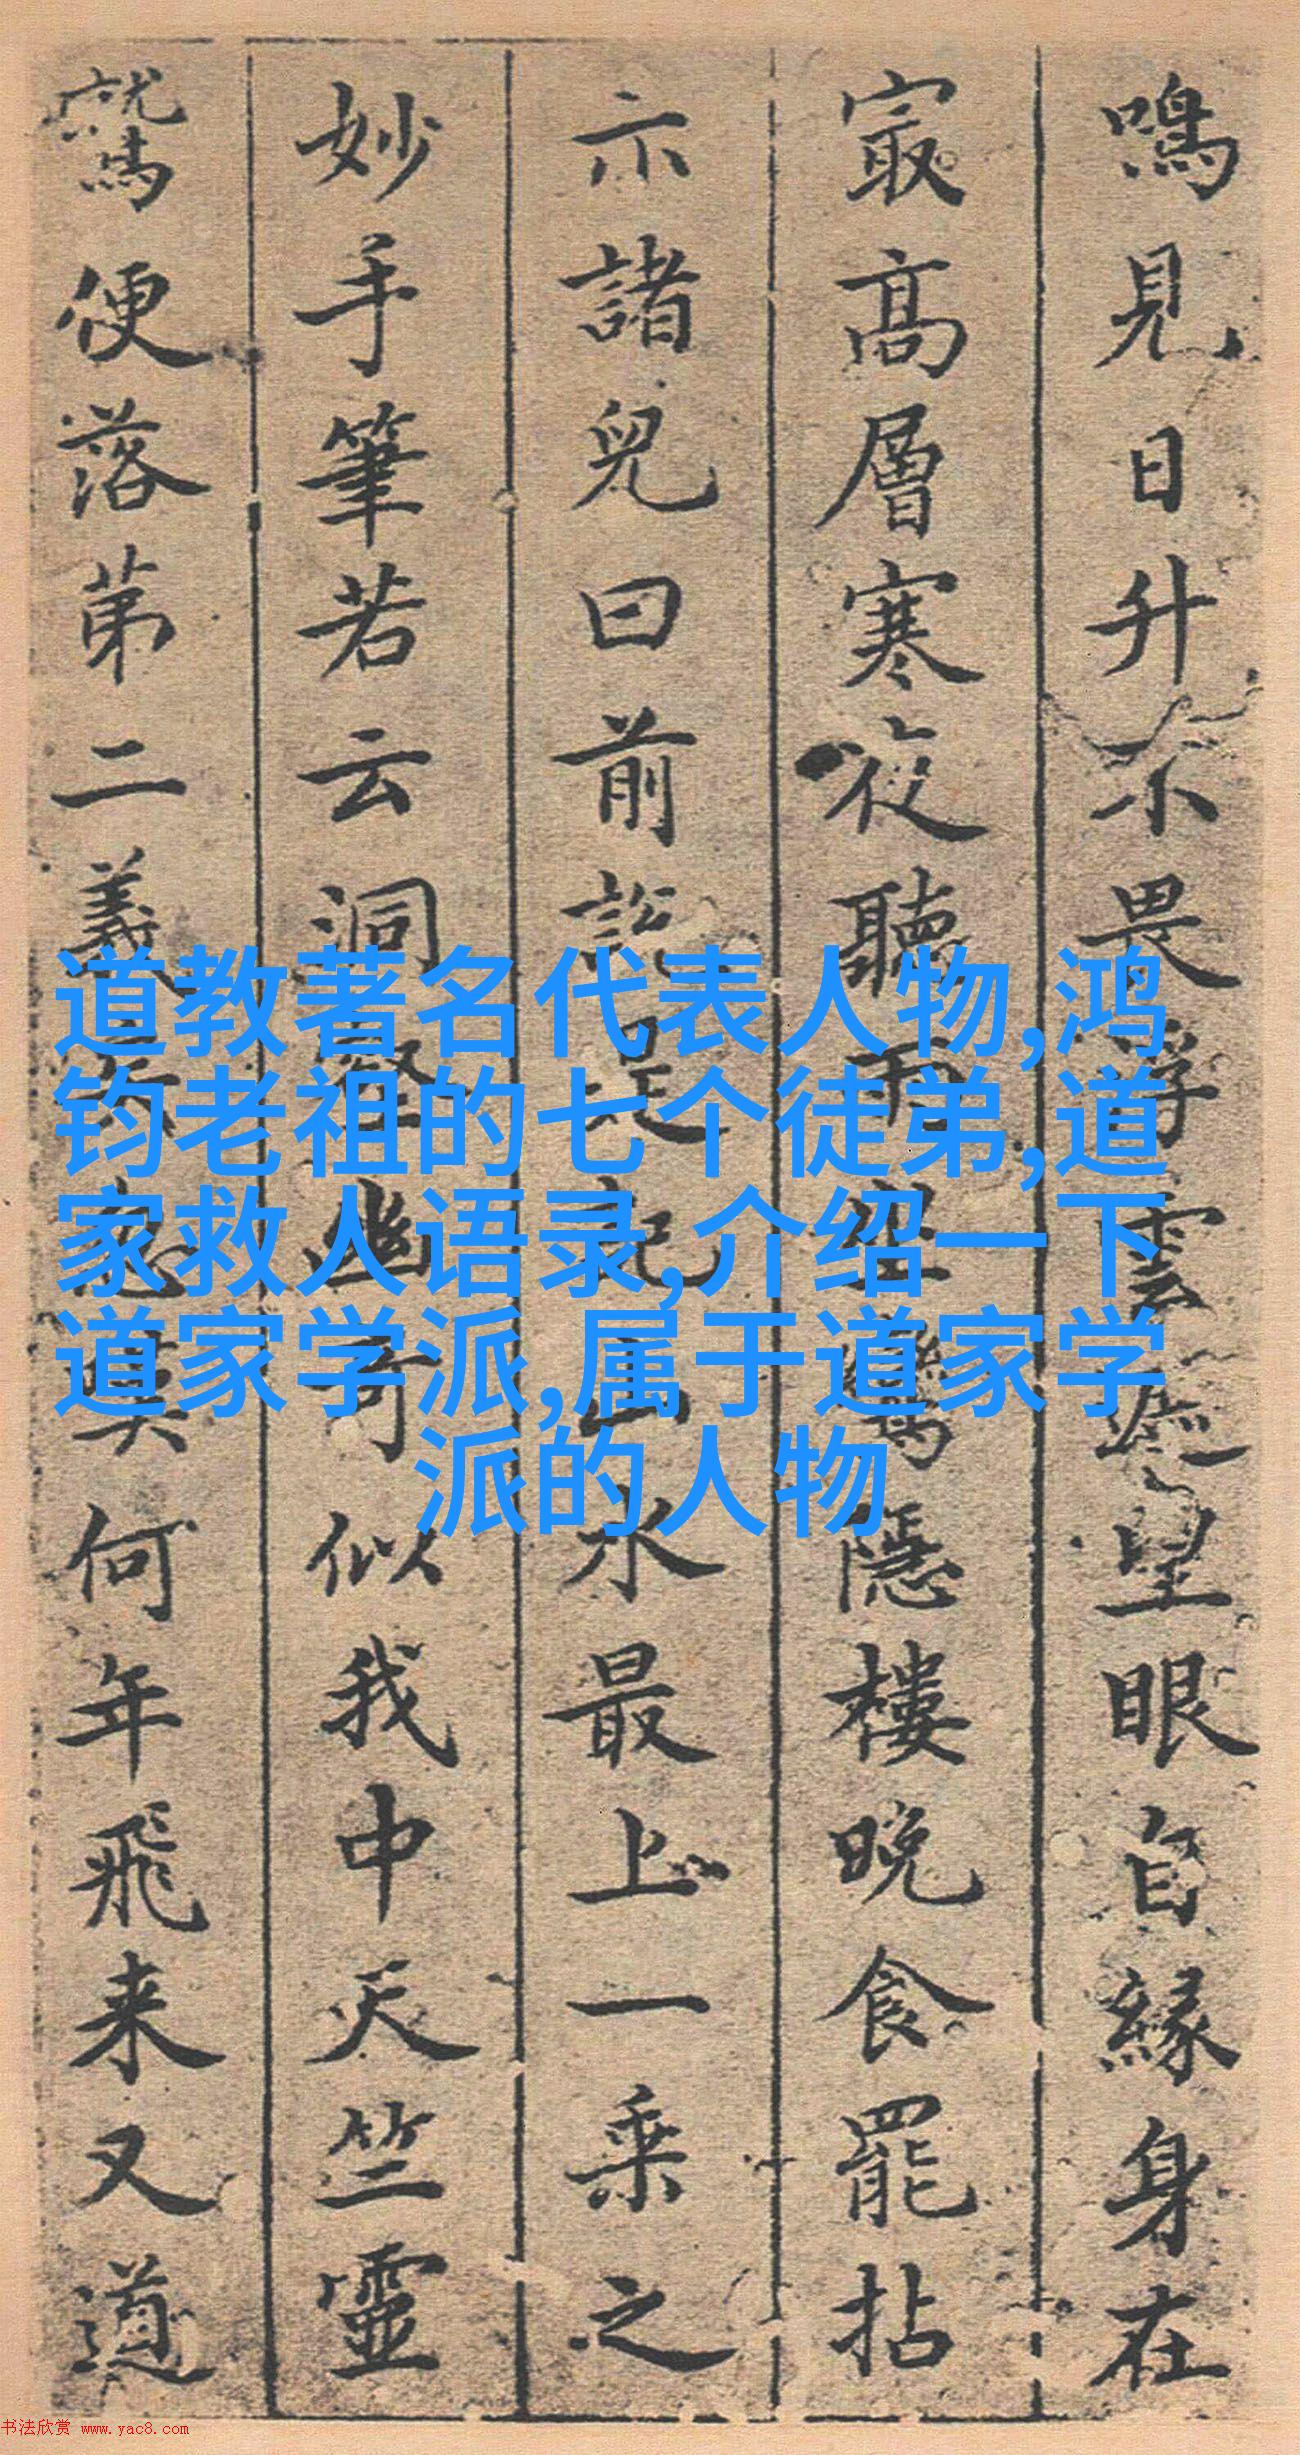 鳴見日升不畏浮雲遮望眼自緣身在
㝡高層寒夜聽雨坐鷲隱樓晚食罷拈
示諸兒曰前説是記山水最上一乘之
妙手筆若云洞壑幽奇似我中天竺靈
鷲便落第二義莫何年飛来又道
道教著名代表人物,鸿
钧老祖的七个徒弟,道
家救人语录,介绍一下
道家学派,属于道家学
派的人物
书法欣赏 www.yac8.com